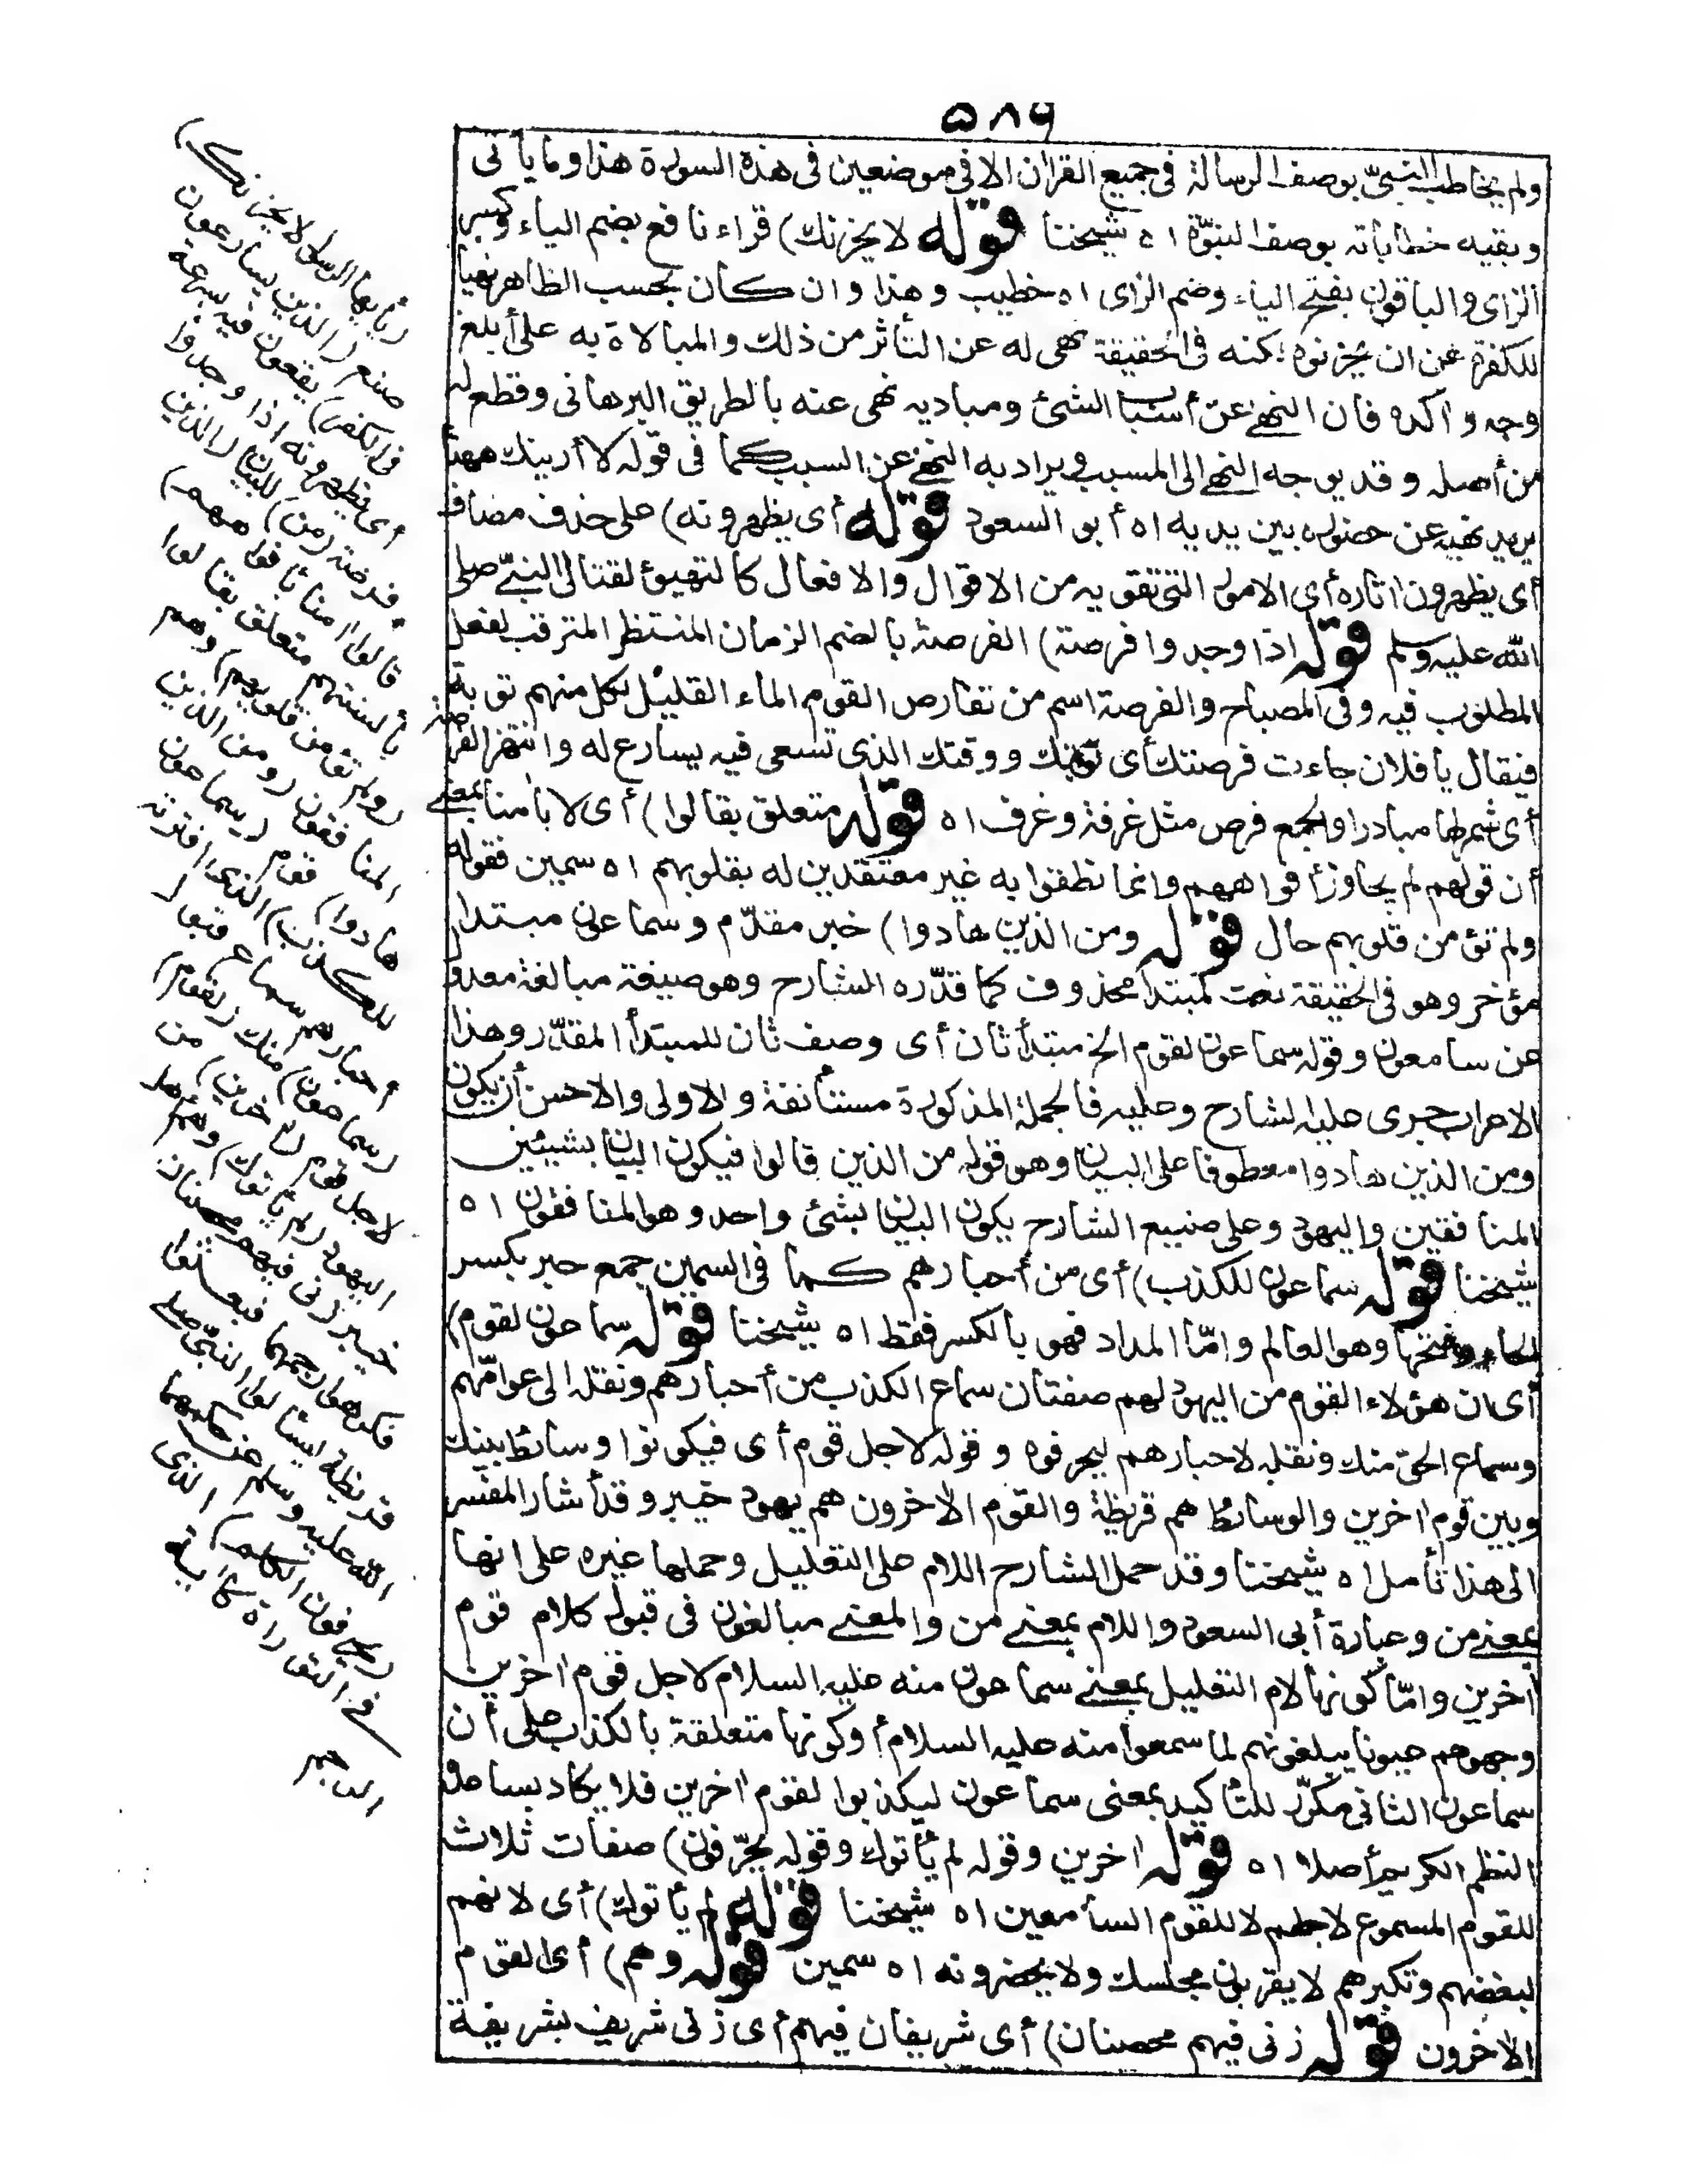 ٥٨٦
ولم يخاطب النبىّ بوصف الرسالة فى جميع القران الا فى موضعين فى هذه السورة هذا وما يأتى
وبقيه خطاباته بوصف النبوّة اه شيخنا قوله لا يحزنك) قراء نافع بضم الياء وكسر
الزاى والباقون بفتح الياء وضم الزاى اه خطيب وهذا وان كان بحسب الظاهر نهيا
للكفرة عن ان يحزنوه لكنه فى الحقيقة نهى له عن التأثر من ذلك والمبالاة به على أبلغ
وجه واكده فان النهى عن أسباب الشئ ومباديه نهى عنه بالطريق البرهانى وقطع له
من أصله وقد يوجه النهى الى المسبب ويراد به النهى عن السبب كما فى قوله لا أرينك ههنا
يريد نهيه عن حضوره بين يديه اه أبو السعود قوله أى يظهرونه) على حذف مضاف
أى يظهرون اثاره أى الامور التى تقويه من الاقوال والافعال كالتهيؤ لقتال النبىّ صلى
الله عليه وسلم قوله اذا وجدوا فرصة) الفرصة بالضم الزمان المنتظر المترقب لفعل
المطلوب فيه وفى المصباح والفرصة اسم من تفارص القوم الماء القليل لكل منهم نوبة
فيقال يا فلان جاءت فرصتك أى نوبتك ووقتك الذى تسعى فيه يسارع له وانتهز الفرصة
أى شمر لها مبادرا والجمع فرص مثل غرفة وغرف اه قوله متعلق بقالوا) أى لا بامنا بمعنى
أن قولهم لم يجاوز أفواههم وانما نطقوا به غير معتقدين له بقلوبهم اه سمين فقوله
ولم تؤمن قلوبهم حال قوله ومن الذين هادوا) خبر مقدّم وسماعون مبتدا
مؤخر وهو فى الحقيقة نعت لمبتدا محذوف كما قدّره الشارح وهو صيغة مبالغة معدول
عن سامعون وقوله سماعون لقوم الخ مبتدأ ثان أى وصف ثان للمبتدأ المقدّر وهذا
الاعراب جرى عليه الشارح وعليه فالجملة المذكورة مستأنفة والاولى والاحسن أن يكون
ومن الذين هادوا معطوفا على البيان وهو قوله من الذين قالوا فيكون البيان بشيئين
المنافقين واليهود وعلى صنيع الشارح يكون البيان بشئ واحد وهو المنافقون اه
شيخنا قوله سماعون للكذب) أى من أحبارهم كما فى السمين جمع حبر بكسر
الحاء وفتحها وهو العالم وامّا المداد فهو بالكسر فقط اه شيخنا قوله سماعون لقوم)
أى ان هؤلاء القوم من اليهود لهم صفتان سماع الكذب من أحبارهم ونقله الى عوامّهم
وسماع الحق منك ونقله لاحبارهم ليحرفوه وقوله لاجل قوم أى فيكونوا وسائط بينك
وبين قوم اخرين والوسائط هم قريظة والقوم الاخرون هم يهود خيبر وقد أشار المفسر
الى هذا تأمل اه شيخنا وقد حمل الشارح اللام على التعليل وحملها غيره على انها
بمعنى من وعبارة أبى السعود واللام بمعنى من والمعنى مبالغون فى قبول كلام قوم
اخرين وامّا كونها لام التعليل بمعنى سماعون منه عليه السلام لاجل قوم اخرين
وجهوهم عيونا يبلغونهم لما سمعوا منه عليه السلام أو كونها متعلقة بالكذب على أن
سماعون الثانى مكرّر للتأكيد بمعنى سماعون ليكذبوا لقوم اخرين فلا يكاد يساعده
النظم الكريم أصلا اه قوله اخرين وقوله لم يأتوك وقوله يحرّفون) صفات ثلاث
للقوم المسموع لاجلهم لا للقوم السامعين اه شيخنا قوله لم يأتوك) أى لانهم
لبغضهم وتكبرهم لا يقربون مجلسك ولا يحضرونه اه سمين قوله وهم) أى القوم
الاخرون قوله زنى فيهم محصنان) أى شريفان فيهم أى زنى شريف بشريفة
(يأيها الرسول لا يحزنك)
صنع (الذين يسارعون
فى الكفر) يقعون فيه بسرعة
أى يظهرونه اذا وجدوا
فرصة (من) للبيان (الذين
قالوا امنا بأفواههم)
بألسنتهم متعلق بقالوا
(ولم تؤمن قلوبهم) وهم
المنافقون (ومن الذين
هادوا) قوم (سماعون
للكذب) الذى افترته
أحبارهم سماع قبول
(سماعون) منك (لقوم)
لاجل قوم (اخرين) من
اليهود (لم يأتوك) وهم أهل
خيبر زنى فيهم محصنان
فكرهوا رجمهما فبعثوا
قريظة ليسألوا النبىّ صلى
الله عليه وسلم عن حكمهما
(يحرفون الكلم) الذى
فى التوراة كاية
الرجم